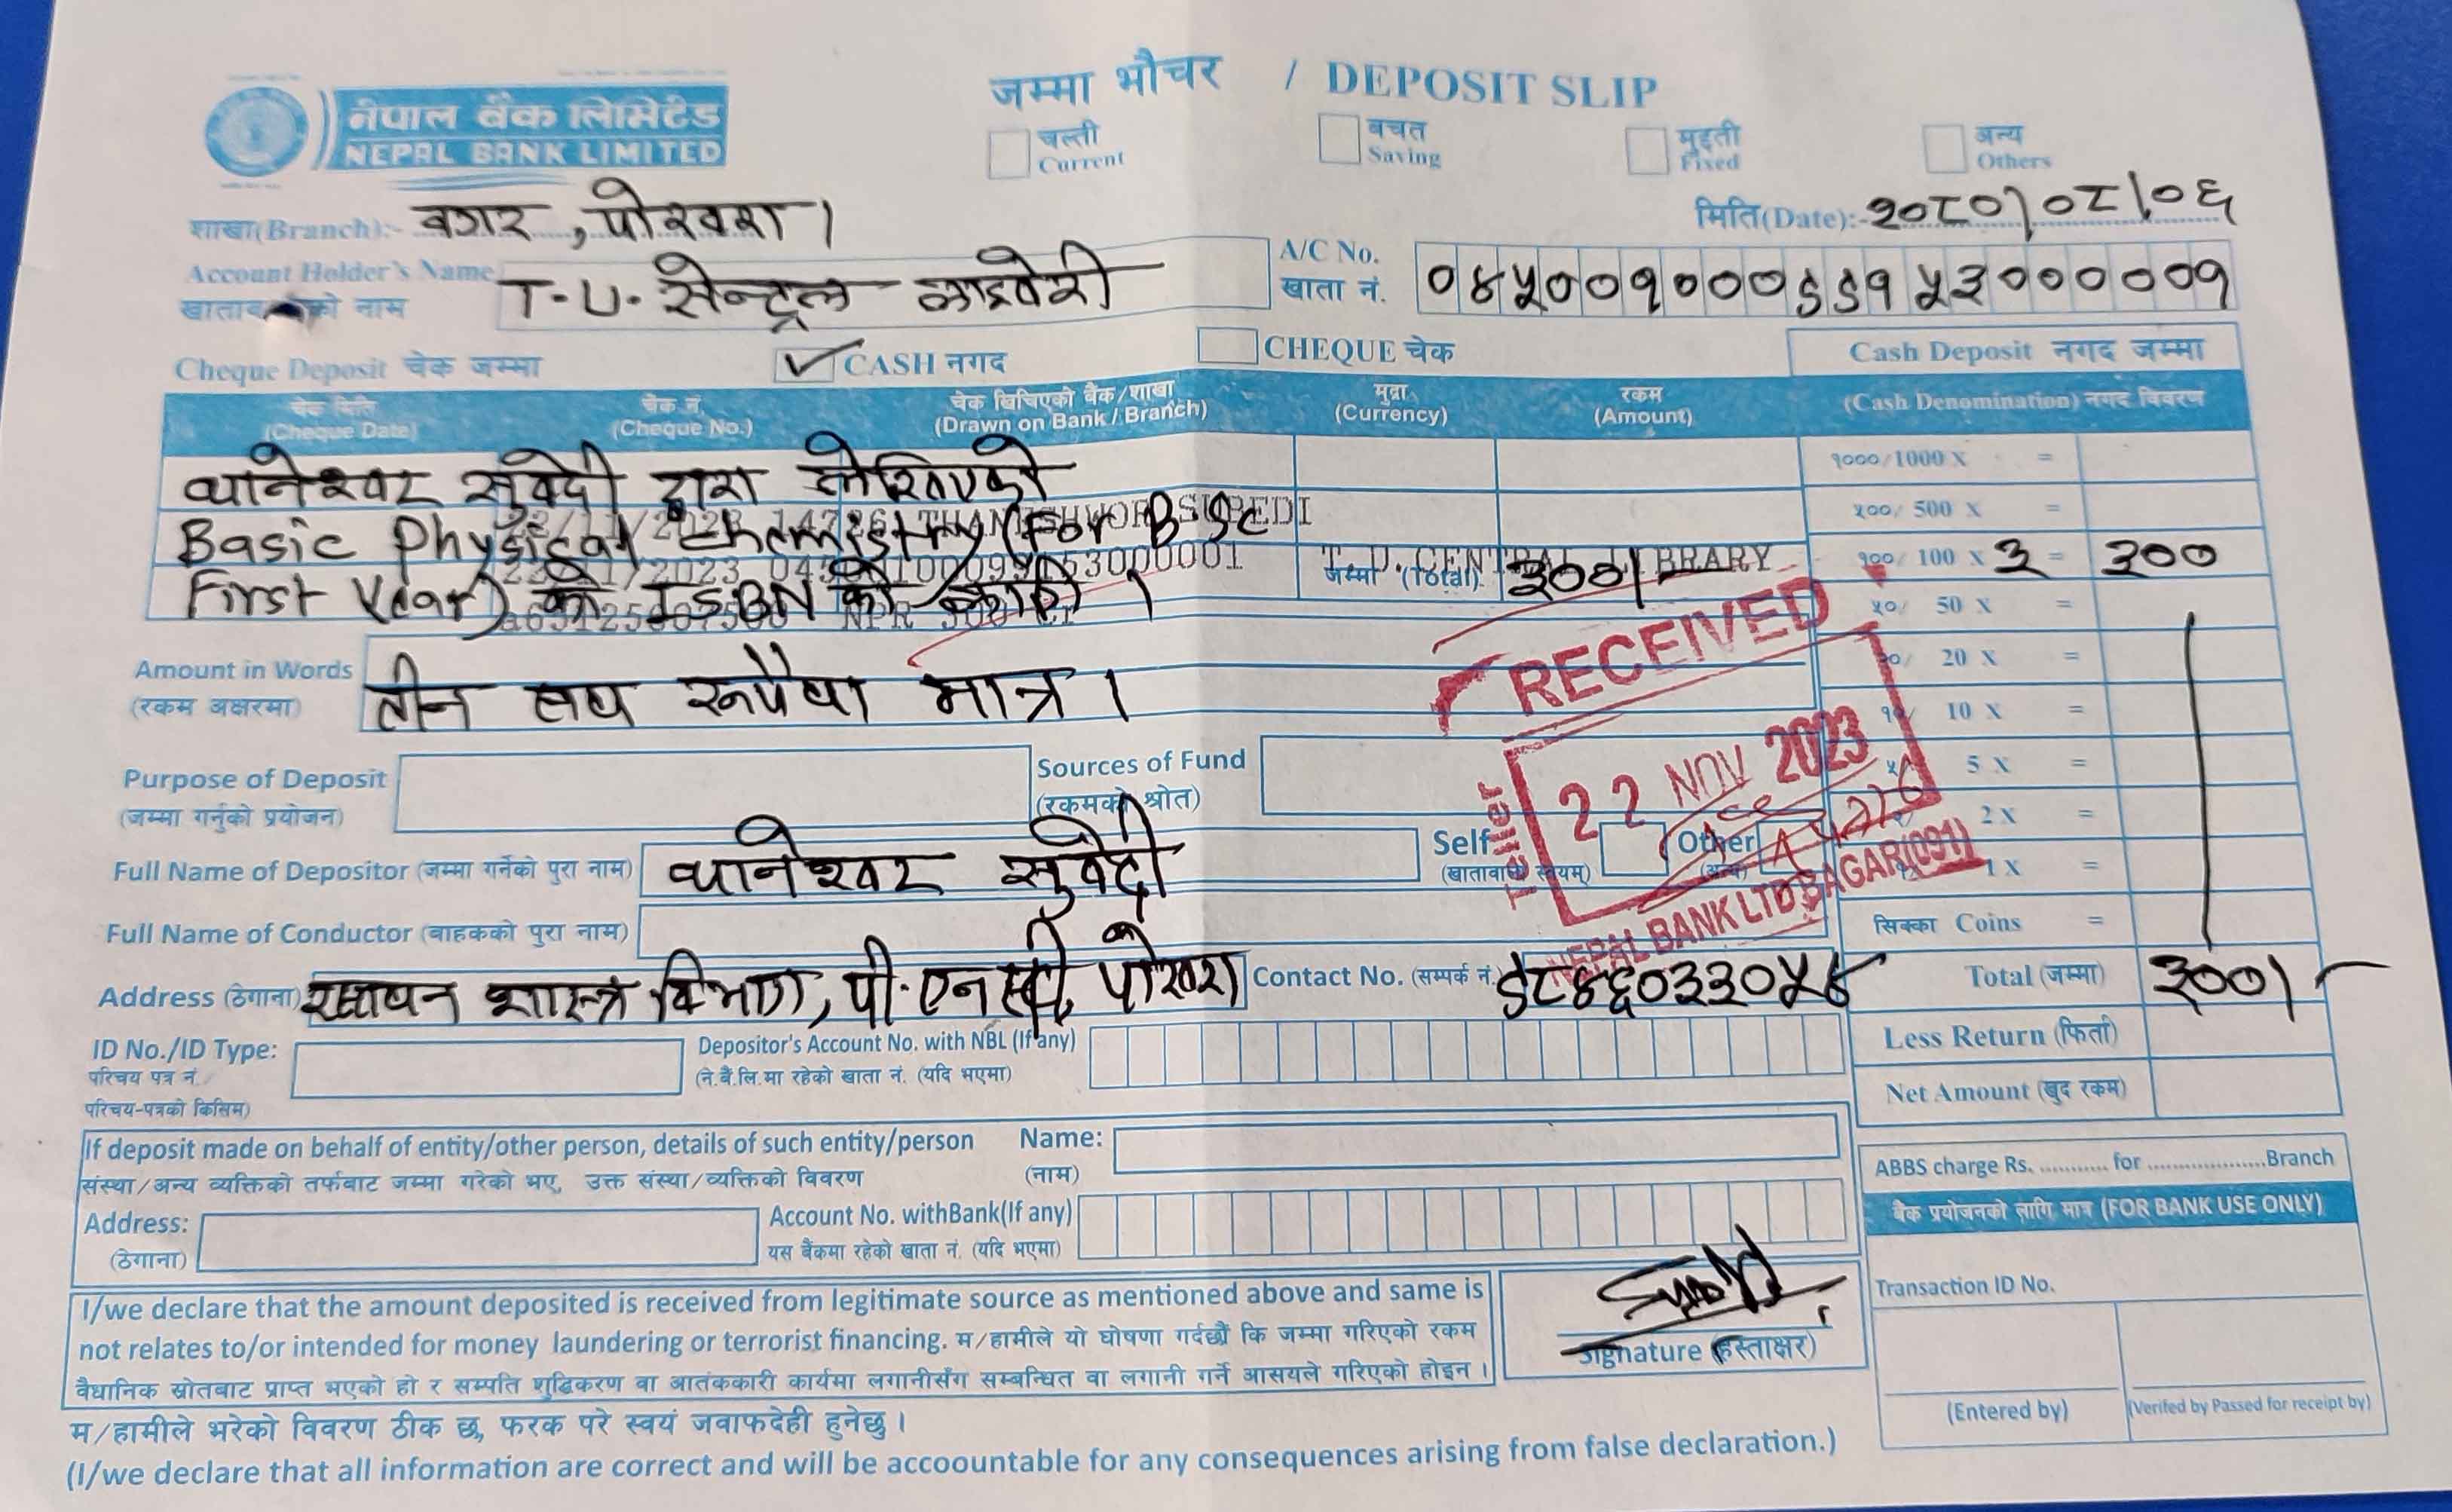 जम्मा भौचर / DEPOSIT SLIP
नेपाल बैंक लिमिटेड
NEPAL BANK LIMITED
चल्ती
Current
बचत
Saving
मुद्दती
Fixed
अन्य
Others
शाखा(Branch):- बगर, पोखरा।
मिति(Date):- २०८०/०८/०६
Account Holder's Name
को नाम
T.U. सेन्ट्रल लाइब्रेरी
A/C No.
खाता नं.
०४५००१०००९९१५३०००००१
Cheque Deposit चेक जम्मा
CASH नगद
CHEQUE चेक
Cash Deposit नगद जम्मा
चेक मिति
(Cheque Date)
चेक नं.
(Cheque No.)
चेक खिचिएको बैंक/शाखा
(Drawn on Bank / Branch)
मुद्रा
(Currency)
रकम
(Amount)
(Cash Denomination) नगद विवरण
थानेश्वर सुवेदी द्वारा लेखिएको
Basic Physical Chemistry (For B Sc
First Year) को ISBN को लागी।
T.U. CENTRAL LIBRARY
जम्मा (Total) ३००/-
१०००/1000 X =
५००/ 500 X =
१००/ 100 X ३ = ३००
५०/ 50 X =
20 X =
१०/ 10 X =
5 X =
2 X =
1 X =
सिक्का Coins =
Total (जम्मा) ३००/-
Less Return (फिर्ता)
Net Amount (खुद रकम)
Amount in Words
(रकम अक्षरमा)
तीन सय रूपैया मात्र।
RECEIVED
22 NOV 2023
Teller
NEPAL BANK LTD BAGAR(091)
Purpose of Deposit
(जम्मा गर्नुको प्रयोजन)
Sources of Fund
(रकमको श्रोत)
Full Name of Depositor (जम्मा गर्नेको पुरा नाम) थानेश्वर सुवेदी
Self
Other
(अन्य)
Full Name of Conductor (वाहकको पुरा नाम)
Address (ठेगाना) रसायन शास्त्र विभाग, पी.एन. पोखरा
Contact No. (सम्पर्क नं. ९८४६०३३०५४
ID No./ID Type:
परिचय पत्र नं.
परिचय-पत्रको किसिम)
Depositor's Account No. with NBL (If any)
(ने.बैं.लि.मा रहेको खाता नं. (यदि भएमा)
If deposit made on behalf of entity/other person, details of such entity/person
संस्था/अन्य व्यक्तिको तर्फबाट जम्मा गरेको भए, उक्त संस्था/व्यक्तिको विवरण
Name:
(नाम)
Address:
(ठेगाना)
Account No. withBank(If any)
यस बैंकमा रहेको खाता नं. (यदि भएमा)
ABBS charge Rs. ........... for ...................Branch
बैंक प्रयोजनको लागि मात्र (FOR BANK USE ONLY)
Transaction ID No.
(Entered by)
(Verifed by Passed for receipt by)
I/we declare that the amount deposited is received from legitimate source as mentioned above and same is
not relates to/or intended for money laundering or terrorist financing. म/हामीले यो घोषणा गर्दछौं कि जम्मा गरिएको रकम
वैधानिक स्रोतबाट प्राप्त भएको हो र सम्पति शुद्धिकरण वा आतंककारी कार्यमा लगानीसँग सम्बन्धित वा लगानी गर्ने आसयले गरिएको होइन।
Signature (हस्ताक्षर)
म/हामीले भरेको विवरण ठीक छ, फरक परे स्वयं जवाफदेही हुनेछु।
(I/we declare that all information are correct and will be accoountable for any consequences arising from false declaration.)